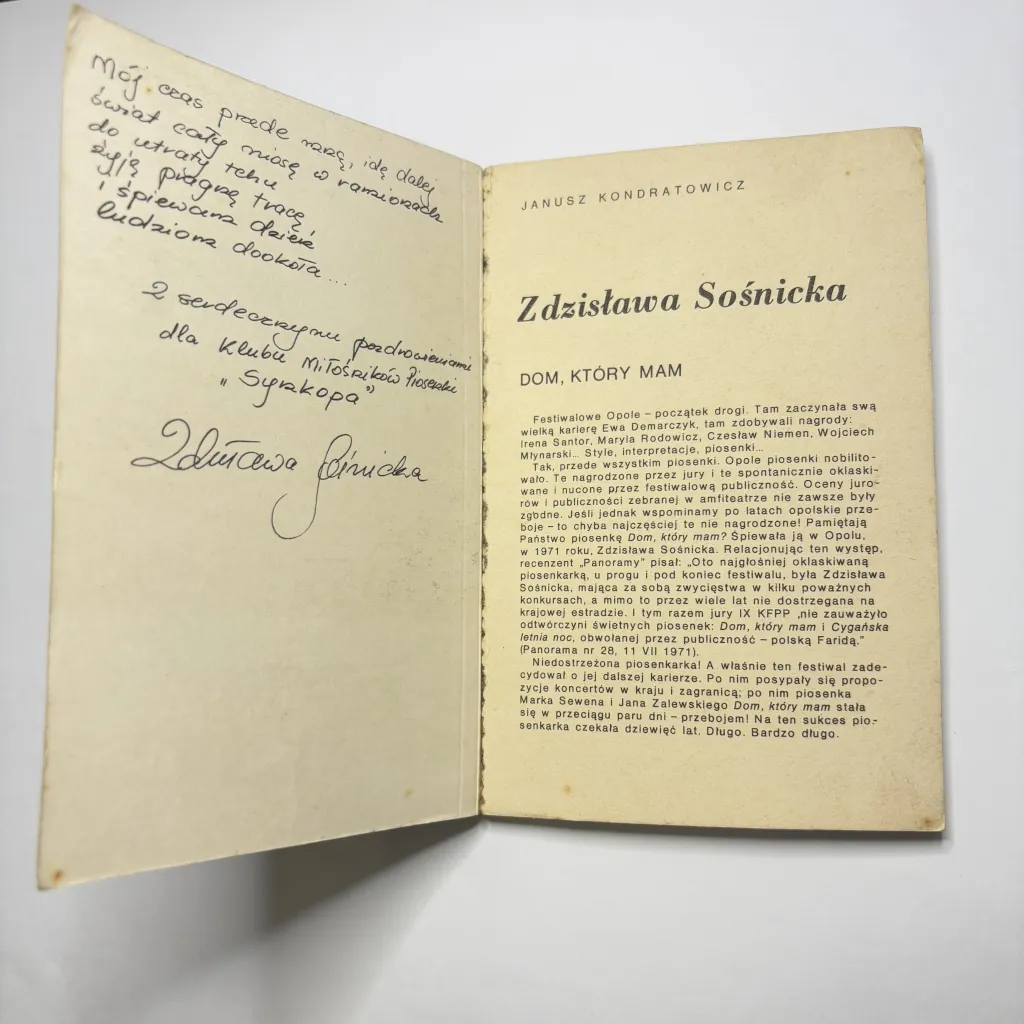 Mój czas przede mną, idę dalej
świat cały niosę w ramionach
do utraty tchu
żyję pragnę tracę
i śpiewam dzień
ludziom dookoła...
Z serdecznymi pozdrowieniami
dla Klubu Miłośników Piosenki
„Synkopa”
Zdzisława Sośnicka
JANUSZ KONDRATOWICZ
Zdzisława Sośnicka
DOM, KTÓRY MAM
Festiwalowe Opole – początek drogi. Tam zaczynała swą
wielką karierę Ewa Demarczyk, tam zdobywali nagrody:
Irena Santor, Maryla Rodowicz, Czesław Niemen, Wojciech
Młynarski... Style, interpretacje, piosenki...
Tak, przede wszystkim piosenki. Opole piosenki nobilito-
wało. Te nagrodzone przez jury i te spontanicznie oklaski-
wane i nucone przez festiwalową publiczność. Oceny juro-
rów i publiczności zebranej w amfiteatrze nie zawsze były
zgodne. Jeśli jednak wspominamy po latach opolskie prze-
boje – to chyba najczęściej te nie nagrodzone! Pamiętają
Państwo piosenkę Dom, który mam? Śpiewała ją w Opolu,
w 1971 roku, Zdzisława Sośnicka. Relacjonując ten występ,
recenzent „Panoramy” pisał: „Oto najgłośniej oklaskiwaną
piosenkarką, u progu i pod koniec festiwalu, była Zdzisława
Sośnicka, mająca za sobą zwycięstwa w kilku poważnych
konkursach, a mimo to przez wiele lat nie dostrzegana na
krajowej estradzie. I tym razem jury IX KFPP „nie zauważyło
odtwórczyni świetnych piosenek: Dom, który mam i Cygańska
letnia noc, obwołanej przez publiczność – polską Faridą.”
(Panorama nr 28, 11 VII 1971).
Niedostrzeżona piosenkarka! A właśnie ten festiwal zade-
cydował o jej dalszej karierze. Po nim posypały się propo-
zycje koncertów w kraju i zagranicą; po nim piosenka
Marka Sewena i Jana Zalewskiego Dom, który mam stała
się w przeciągu paru dni – przebojem! Na ten sukces pio-
senkarka czekała dziewięć lat. Długo. Bardzo długo.